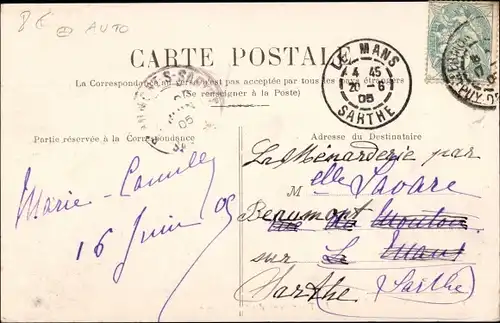 8€ @ AUTO
CARTE POSTALE
La Correspondance au verso n'est pas acceptée par tous les pays étrangers
(Se renseigner à la Poste)
LE MANS
4 45
20 - 6
05
SARTHE
05
Partie réservée à la Correspondance
Adresse du Destinataire
Marie-Camille
16 Juin 05
La Ménarderie par
Melle Savare
Beaumont
rue du Mouton
sur Le Mans
Sarthe (Sarthe)